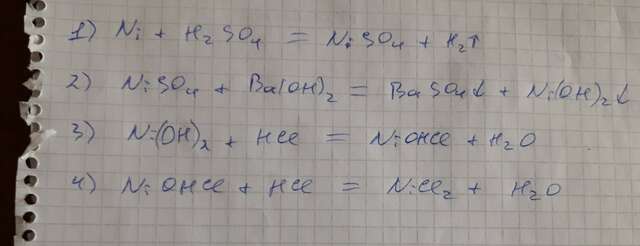 1) Ni + H₂SO₄ = NiSO₄ + H₂↑
2) NiSO₄ + Ba(OH)₂ = BaSO₄↓ + Ni(OH)₂↓
3) Ni(OH)₂ + HCl = NiOHCl + H₂O
4) NiOHCl + HCl = NiCl₂ + H₂O